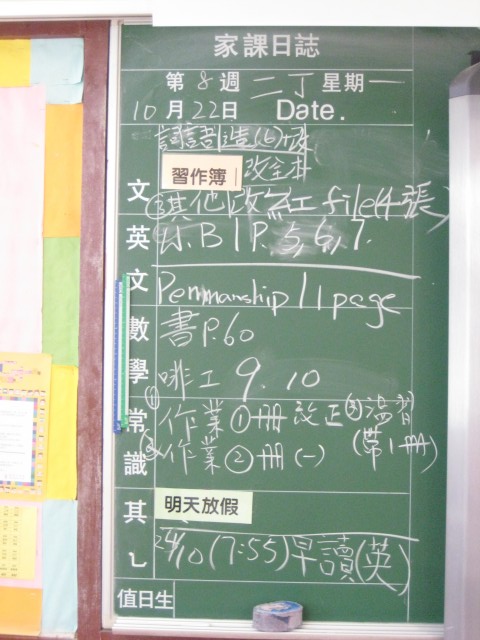 家課日誌
第8週 二丁 星期一
10月22日 Date.
詞語造(七)成
習作簿 改全本
文 ③其他改紅file(4張)
英 W.B1 P. 5,6,7.
文 Penmanship 11 page
數 書P.60
學 啡工 9.10
常 ⑴作業①冊改正⑶溫習
識 ⑵作業②冊(一) (帶1冊)
其 明天放假
24/10(7:55)早讀(英)
值日生